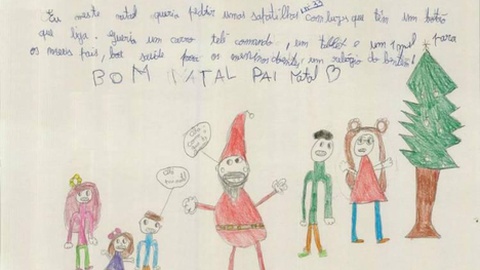 nº33
Eu neste natal queria pedir umas sapatilhas com luzes que têm um botão
que liga. Queria um carro tele comando, um tablet e um anel para
os meus pais, boa saúde para os meninos doentes, um relógio do
BOM NATAL PAI Natal ♡